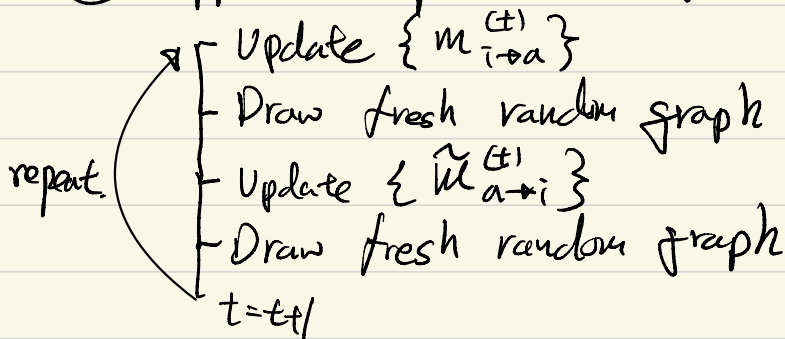 Update { m^{(t)}_{i→a} }
Draw fresh random graph
repeat. Update { \tilde{m}^{(t)}_{a→i} }
Draw fresh random graph
t=t+1